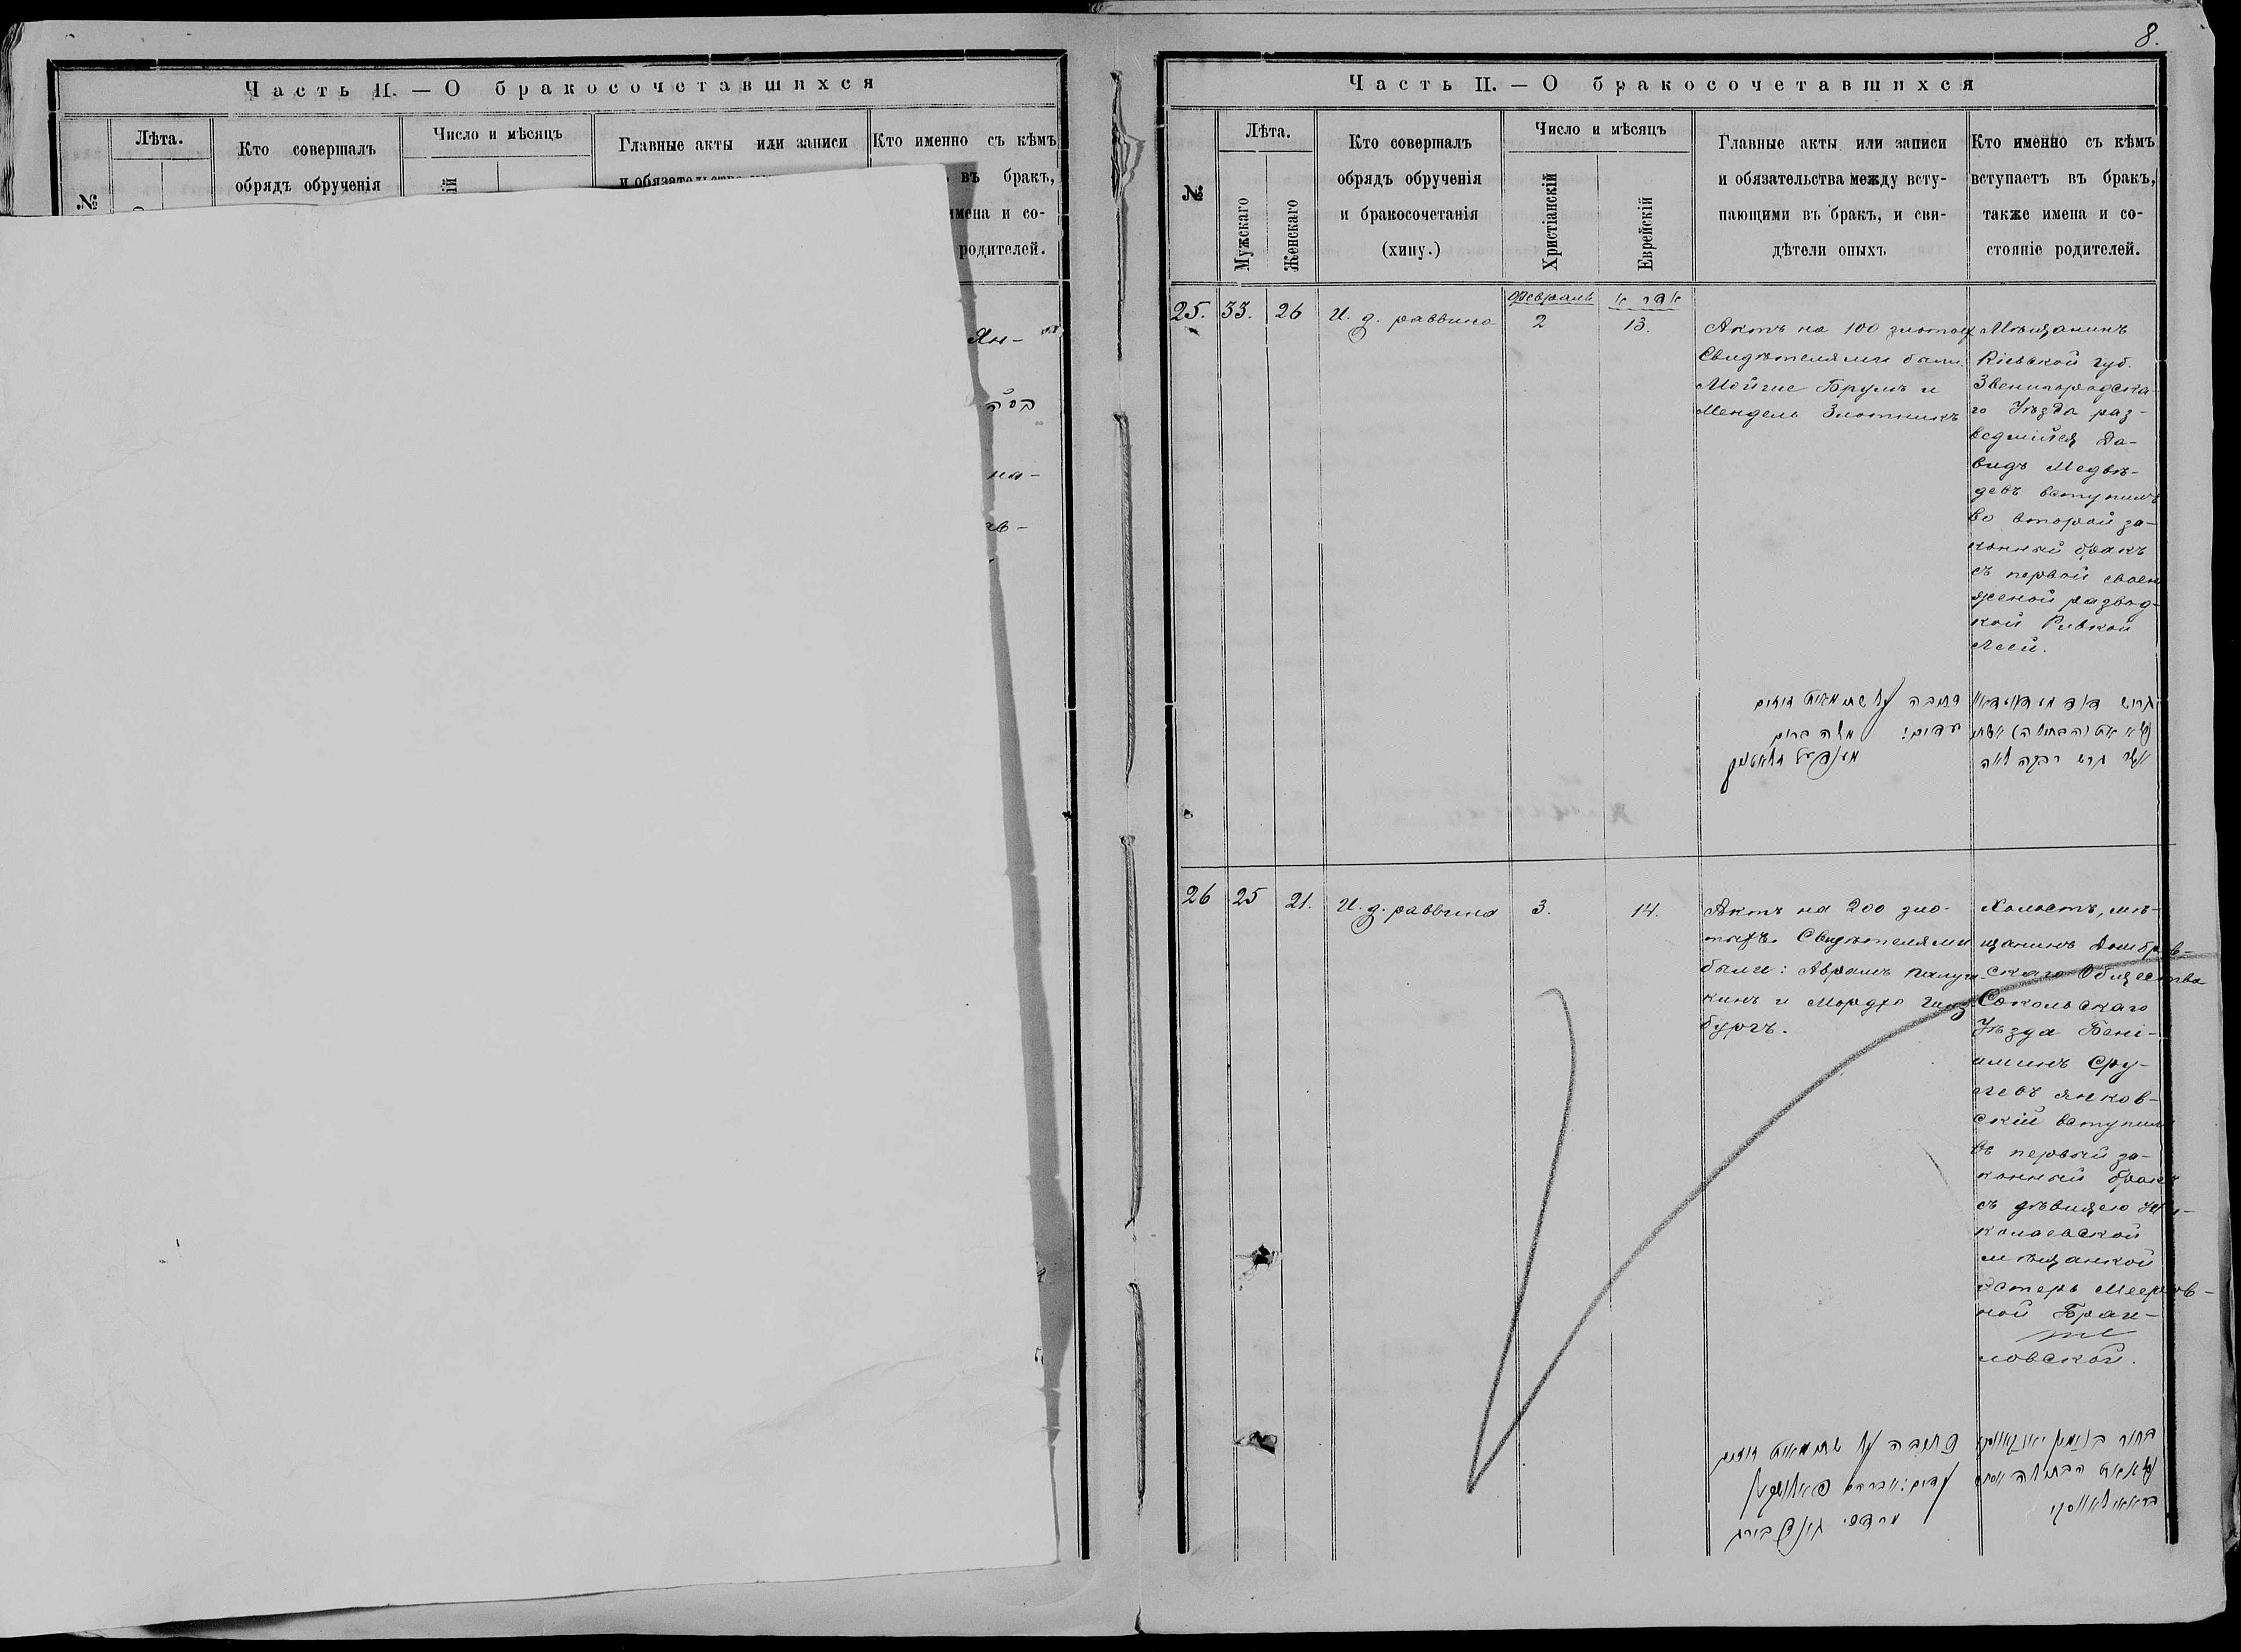 8.
Часть II. — О бракосочетавшихся
№
Лѣта.
Кто совершалъ
обрядъ обрученія
Число и мѣсяцъ
ій
Главные акты или записи
Кто именно съ кѣмъ
въ бракъ,
имена и со-
родителей.
Ян-
на-
ав-
Часть II. — О бракосочетавшихся
№
Лѣта.
Мужскаго
Женскаго
Кто совершалъ
обрядъ обрученія
и бракосочетанія
(хипу.)
Число и мѣсяцъ
Христіанскій
Еврейскій
Главные акты или записи
и обязательства между всту-
пающими въ бракъ, и сви-
дѣтели оныхъ
Кто именно съ кѣмъ
вступаетъ въ бракъ,
также имена и со-
стояніе родителей.
25.
33.
26
И. д. раввина
Февраль
2
אדר א
13.
Актъ на 100 злотых
Свидѣтелями были:
Мойше Брумъ и
Мендель Злотникъ
Мѣщанинъ
Кіевской губ.
Звенигородска-
го Уѣзда раз-
ведшійся Да-
видъ Медвѣ-
девъ вступилъ
во второй за-
конный бракъ
съ первой своей
женой развод-
кой Ривкой
Леей.
כתובה על מאות זהובים
עדים: משה ברום
מענדעל זלאטניק
אשר גרש רבקה לאה
26
25
21.
И. д. раввина
3.
14.
Актъ на 200 зло-
тыхъ. Свидѣтелями
были: Абрамъ
кинъ и Мордхо Гинз
бургъ.
Холостъ, мѣ-
щанинъ Домбров-
скаго Общества
Сокольскаго
Уѣзда Бені-
аминъ Сру-
левъ Янков-
скій вступилъ
въ первый за-
конный бракъ
съ дѣвицею Ни-
колаевской
мѣщанкой
Эстеръ Мееров-
ной Браи-
ловской.
כתובה על מאות זהובים
עדים: אברהם
מרדכי גינזבורג
בחור בנימין יאנקאווסקי
בראאילאווסקי